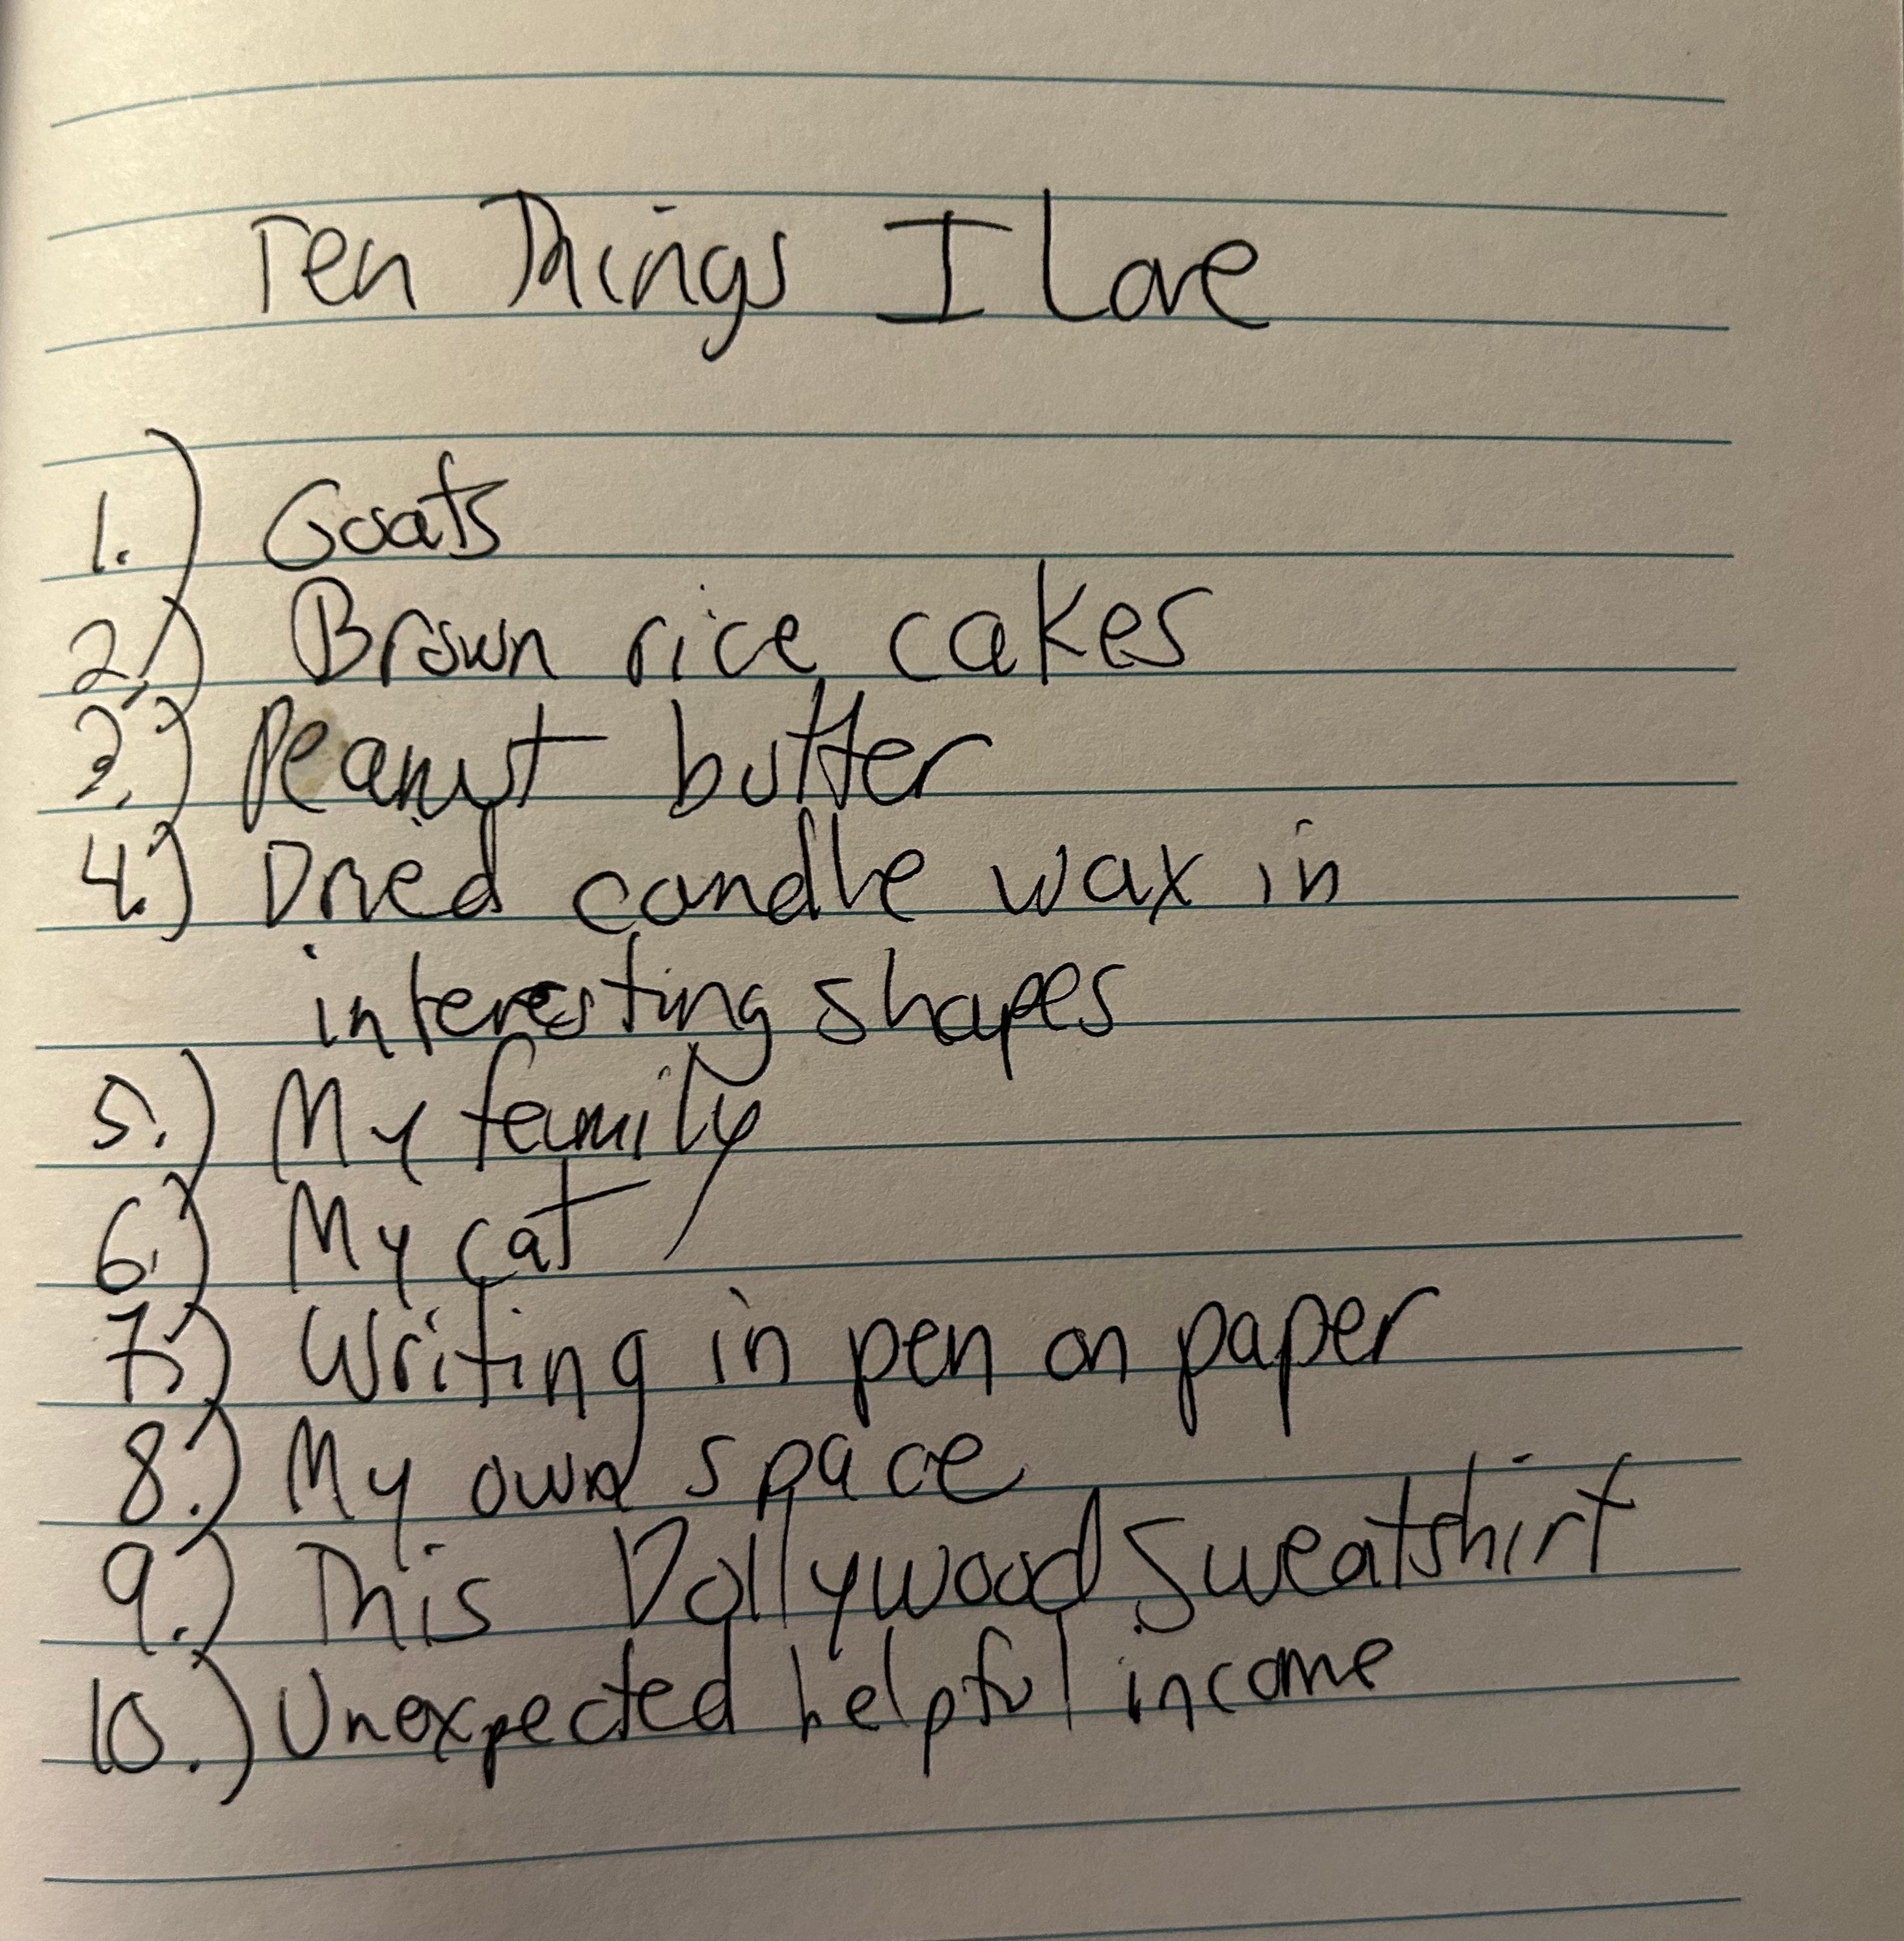 Ten Things I Love
1.) Goats
2.) Brown rice cakes
3.) Peanut butter
4.) Dried candle wax in
interesting shapes
5.) My family
6.) My cat
7.) Writing in pen on paper
8.) My own space
9.) This Dollywood sweatshirt
10.) Unexpected helpful income